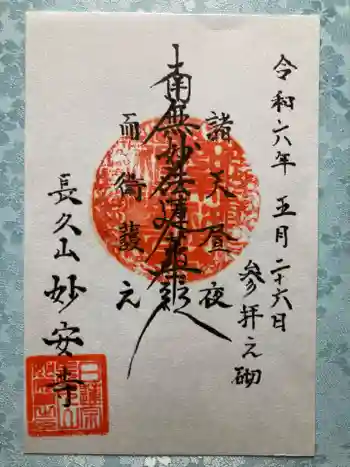 令和六年 五月二十六日
参拝之砌
諸天昼夜
南無妙法蓮華経
而衛護之
長久山 妙安寺